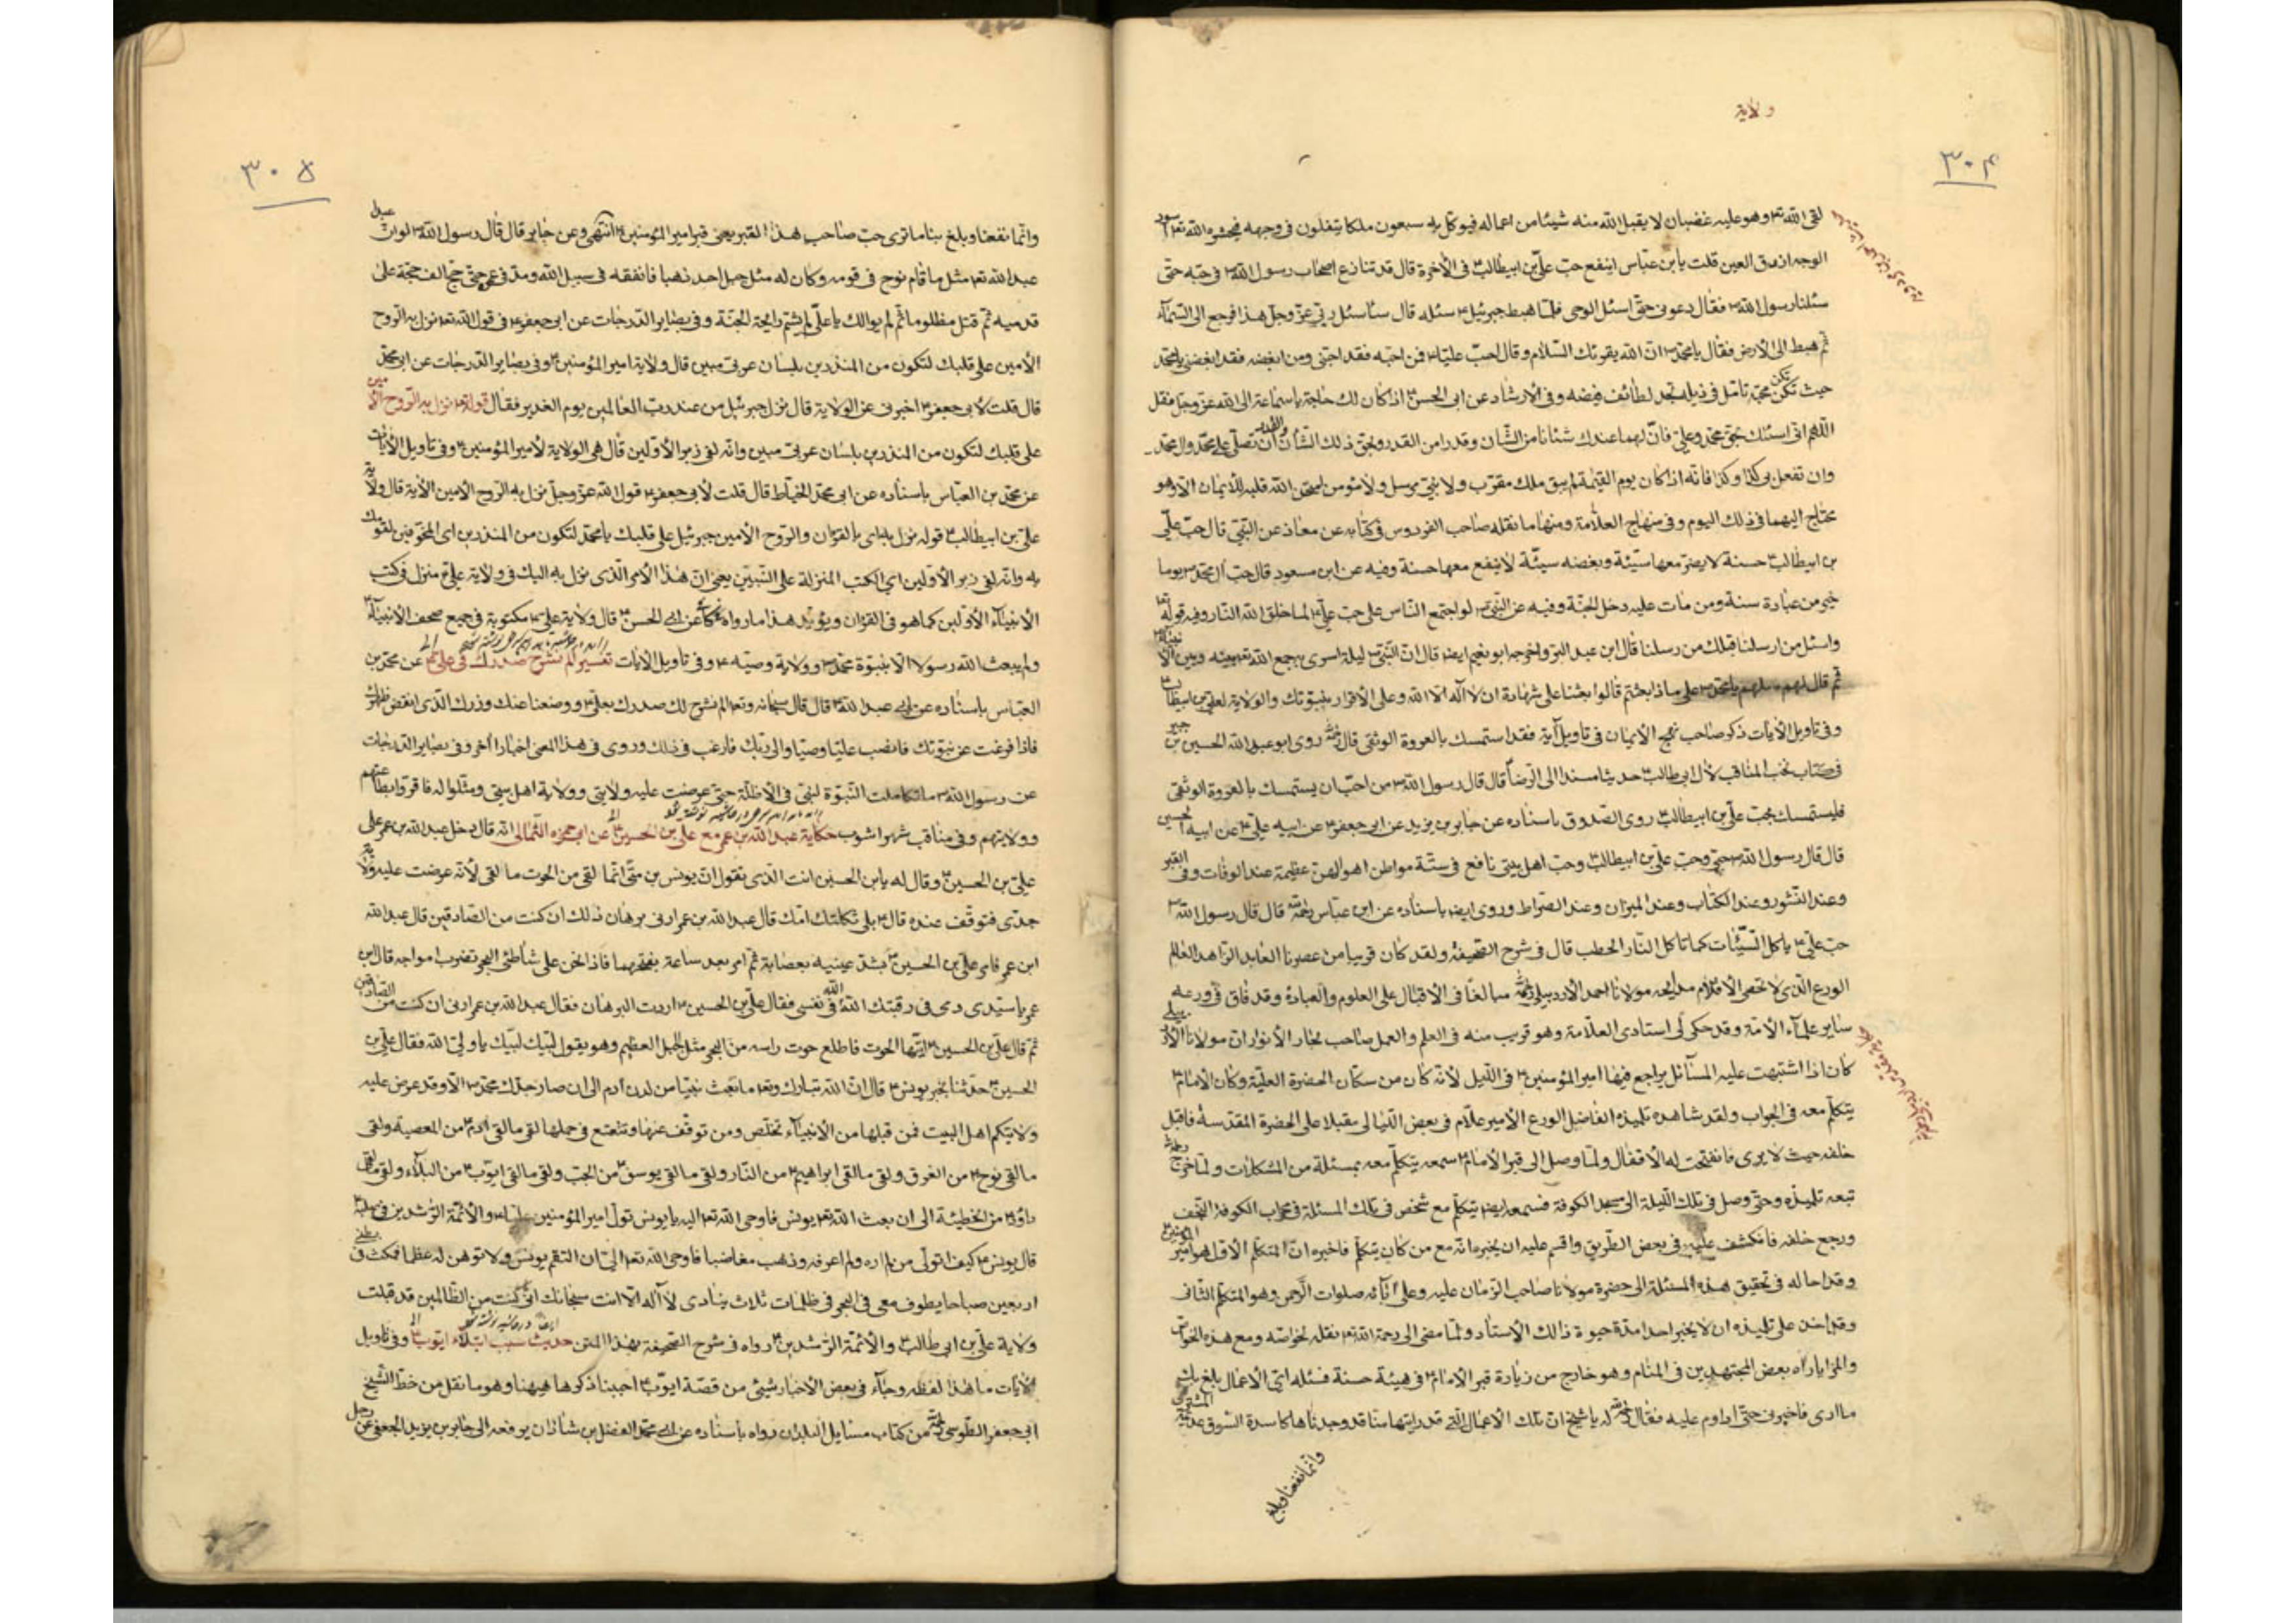 ولاية
۳۰۴
لقى الله تعه وهو عليه غضبان لا يقبل الله منه شيئا من اعماله فيوكل به سبعون ملكا يتفلون فى وجهه فيحشره الله تعه اسود
الوجه ازرق العين قلت يابن عباس اينفع حب على بن ابيطالب ع فى الاخرة قال قد تنازع اصحاب رسول الله ص فى حبه حتى
سئلنا رسول الله ص فقال دعونى حتى اسئل الوحى فلما هبط جبرئيل ع سئله قال سئاسئل ربى عز وجل هذا فرجع الى السمآء
ثم هبط الى الارض فقال يا محمد ص ان الله يقرئك السلام وقال احب عليا ع فمن احبه فقد احبنى ومن ابغضه فقد ابغضنى يا محمد
حيث تكن يكن محبه تامل فى ذيله تجد لطائف فيضه وفى الارشاد عن ابى الحسن ع اذا كان لك حاجة يا سماعة الى الله عز وجل فقل
اللهم انى اسئلك بحق محمد وعلى فان لهما عندك شئانا من الشان وقدرا من القدر وبحق ذلك الشان والقدر ان تصلى على محمد وال محمد
وان تفعل بى كذا وكذا فانه اذا كان يوم القيمة لم يبق ملك مقرب ولا نبى مرسل ولا مؤمن امتحن الله قلبه للايمان الا وهو
محتاج اليهما فى ذلك اليوم وفى منهاج العلامة ومنها ما نقله صاحب الفردوس فى كتابه عن معاذ عن النبى قال حب على
بن ابيطالب ع حسنة لا يضر معها سيئة وبغضه سيئة لا ينفع معها حسنة وفيه عن ابن مسعود قال حب آل محمد ص يوما
خير من عبادة سنة ومن مات عليه دخل الجنة وفيه عن النبى ص لو اجتمع الناس على حب على ع لما خلق الله النار وفيه قوله تعه
واسئل من ارسلنا قبلك من رسلنا قال ابن عبد البر واخرجه ابو نعيم ايضا قال ان النبى ص ليلة اسرى به جمع الله تعه بينه وبين الانبياء
ثم قال لهم سلهم يا محمد ص على ماذا بعثتم قالوا بعثنا على شهادة ان لا اله الا الله وعلى الاقرار بنبوتك والولاية لعلى بن ابيطالب ع
وفى تاويل الآيات ذكر صاحب نهج الايمان فى تاويل آية فقد استمسك بالعروة الوثقى قال روى ابو عبد الله الحسين بن جبير
فى كتاب نخب المناقب لآل ابى طالب ع حديثا مسندا الى الرضا قال قال رسول الله ص من احب ان يستمسك بالعروة الوثقى
فليستمسك بحب على بن ابيطالب ع روى الصدوق باسناده عن جابر بن يزيد عن ابى جعفر ع عن ابيه على ع عن ابيه الحسين
قال قال رسول الله ص حبى وحب على بن ابيطالب ع وحب اهل بيتى نافع فى ستة مواطن اهوالهن عظيمة عند الوفات وفى القبر
وعند النشور وعند الكتاب وعند الميزان وعند الصراط وروى ايضا باسناده عن ابن عباس قال قال رسول الله ص
حب على ع ياكل السيئات كما تاكل النار الحطب قال فى شرح الصحيفة ولقد كان قريبا من عصرنا العابد الزاهد العالم
الورع الذى لا تحصى الاقلام مدايحه مولانا احمد الاردبيلى مبالغا فى الاقبال على العلوم والعبادة وقد فاق فى ورعه
ساير علمآء الامة وقد حكى لى استادى العلامة وهو قريب منه فى العلم والعمل صاحب بحار الانوار ان مولانا الاردبيلى
كان اذا اشتبهت عليه المسائل يراجع فيها امير المؤمنين ع فى الليل لانه كان من سكان الحضرة العلية وكان الامام ع
يتكلم معه فى الجواب ولقد شاهده تلميذه الفاضل الورع الامير علام فى بعض الليالى مقبلا على الحضرة المقدسة فاقبل
خلفه حيث لا يرى فانفتحت له الاقفال ولما وصل الى قبر الامام ع سمعه يتكلم معه بمسئلة من المشكلات ولما خرج
تبعه تلميذه وحتى وصل فى تلك الليلة الى مسجد الكوفة فسمعه ايضا يتكلم مع شخص فى تلك المسئلة فى محراب الكوفة النجف
ورجع خلفه فانكشف عليه فى بعض الطريق واقسم عليه ان يخبره انه مع من كان يتكلم فاخبره ان المتكلم الاول هو امير المؤمنين ع
وقد احاله فى تحقيق هذه المسئلة الى حضرة مولانا صاحب الزمان عليه وعلى آبائه صلوات الرحمن وهو المتكلم الثانى
وقد اخذ على تلميذه ان لا يخبر احدا مدة حيوة ذالك الاستاد ولما مضى الى رحمة الله تعه نقله لخواصه ومع هذه الخواص
والمزايا رآه بعض المجتهدين فى المنام وهو خارج من زيارة قبر الامام ع فى هيئة حسنة فسئله اى الاعمال بلغ بك
ما ارى فاخبرنى حتى اداوم عليه فقال له يا شيخ ان تلك الاعمال التى قد رايتها منا قد وجدناها كاسدة السوق عديمة المشترى
وانما نفعنا وبلغ
۳۰۵
وانما نفعنا وبلغ بنا ما ترى حب صاحب هذا القبر يعنى قبر امير المؤمنين ع انتهى وعن جابر قال قال رسول الله ص لو ان عبدا
عبد الله تعه مثل ما قام نوح فى قومه وكان له مثل جبل احد ذهبا فانفقه فى سبيل الله ومد فى عمره حتى حج الف حجة على
قدميه ثم قتل مظلوما ثم لم يوالك يا على لم يشم رايحة الجنة وفى بصاير الدرجات عن ابى جعفر ع فى قول الله تعه نزل به الروح
الامين على قلبك لتكون من المنذرين بلسان عربى مبين قال ولاية امير المؤمنين ع وفى بصاير الدرجات عن ابى محمد
قال قلت لابى جعفر ع اخبرنى عن الولاية قال نزل جبرئيل من عند رب العالمين يوم الغدير فقال قوله تعه نزل به الروح الامين
على قلبك لتكون من المنذرين بلسان عربى مبين وانه لفى زبر الاولين قال هى الولاية لامير المؤمنين ع وفى تاويل الايات
عن محمد بن العباس باسناده عن ابى محمد الخياط قال قلت لابى جعفر ع قول الله عز وجل نزل به الروح الامين الاية قال ولاية
على بن ابيطالب ع قوله نزل به اى بالقران والروح الامين جبرئيل على قلبك يا محمد لتكون من المنذرين اى المخوفين لقومك
به وانه لفى زبر الاولين اى الكتب المنزلة على النبيين يعنى ان هذا الامر الذى نزل به اليك فى ولاية على ع منزل فى كتب
الانبيآء الاولين كما هو فى القران ويؤيد هذا ما رواه عن ابى الحسن ع قال ولاية على ع مكتوبة فى جميع صحف الانبيآء
ولم يبعث الله رسولا الا بنبوة محمد ص وولاية وصيه ع وفى تاويل الايات تفسير الم نشرح صدرك فى على ع عن محمد بن
العباس باسناده عن ابى عبد الله ع قال قال سبحانه وتعه الم نشرح لك صدرك بعلى ع ووضعنا عنك وزرك الذى انقض ظهرك
فاذا فرغت عن نبوتك فانصب عليا وصيا والى ربك فارغب فى ذلك وروى فى هذا المعنى اخبارا اخر وفى بصاير الدرجات
عن رسول الله ص ما تكاملت النبوة لنبى فى الاظلة حتى عرضت عليه ولايتى وولاية اهل بيتى ومثلوا له فاقروا بطاعتهم
وولايتهم وفى مناقب شهر اشوب حكاية عبد الله بن عمر مع على بن الحسين ع عن ابى حمزه الثمالى انه قال دخل عبد الله بن عمر على
على بن الحسين ع وقال له يابن الحسين انت الذى تقول ان يونس بن متى انما لقى من الحوت ما لقى لانه عرضت عليه ولاية
جدى فتوقف عنده قال ع بلى ثكلتك امك قال عبد الله بن عمر ارنى برهان ذلك ان كنت من الصادقين قال عبد الله
ابن عمر فامر على بن الحسين ع بشد عينيه بعصابة ثم امر بعد ساعة بفتحهما فاذا نحن على شاطئ البحر تضرب امواجه قال ابن
عمر يا سيدى دمى فى رقبتك الله الله فى نفسى فقال على بن الحسين ع اردت البرهان فقال عبد الله بن عمر ارنى ان كنت من الصادقين
ثم قال على بن الحسين ع ايتها الحوت فاطلع حوت راسه من البحر مثل الجبل العظيم وهو يقول لبيك لبيك يا ولى الله فقال على بن
الحسين ع حدثنا بخبر يونس ع قال ان الله تبارك وتعه ما بعث نبيا من لدن ادم الى ان صار جدك محمد ص الا وقد عرض عليه
ولايتكم اهل البيت فمن قبلها من الانبيآء تخلص ومن توقف عنها وتتعتع فى حملها لقى ما لقى ادم ع من المعصية ولقى
ما لقى نوح ع من الغرق ولقى ما لقى ابراهيم ع من النار ولقى ما لقى يوسف ع من الجب ولقى ما لقى ايوب ع من البلآء ولقى ما لقى
داود ع من الخطيئة الى ان بعث الله تعه يونس فاوحى الله تعه اليه يا يونس تول امير المؤمنين عليا ع والائمة الراشدين من صلبه
قال يونس ع كيف اتولى من لم اره ولم اعرفه وذهب مغاضبا فاوحى الله تعه الى ان التقم يونس ولا توهن له عظما فمكث فى بطنى
اربعين صباحا يطوف معى فى البحر فى ظلمات ثلاث ينادى لا آله الا انت سبحانك انى كنت من الظالمين قد قبلت
ولاية على بن ابى طالب ع والائمة الراشدين ع رواه فى شرح الصحيفة بهذا المتن حديث سبب ابتلاء ايوب ع وفى تاويل
الآيات ما هذا لفظه وجآء فى بعض الاخبار شيئ من قصة ايوب ع احببنا ذكرها هيهنا وهو ما نقل من خط الشيخ
ابى جعفر الطوسى من كتاب مسايل البلدان رواه باسناده عن ابى محمد الفضل بن شاذان يرفعه الى جابر بن يزيد الجعفى عن رجل